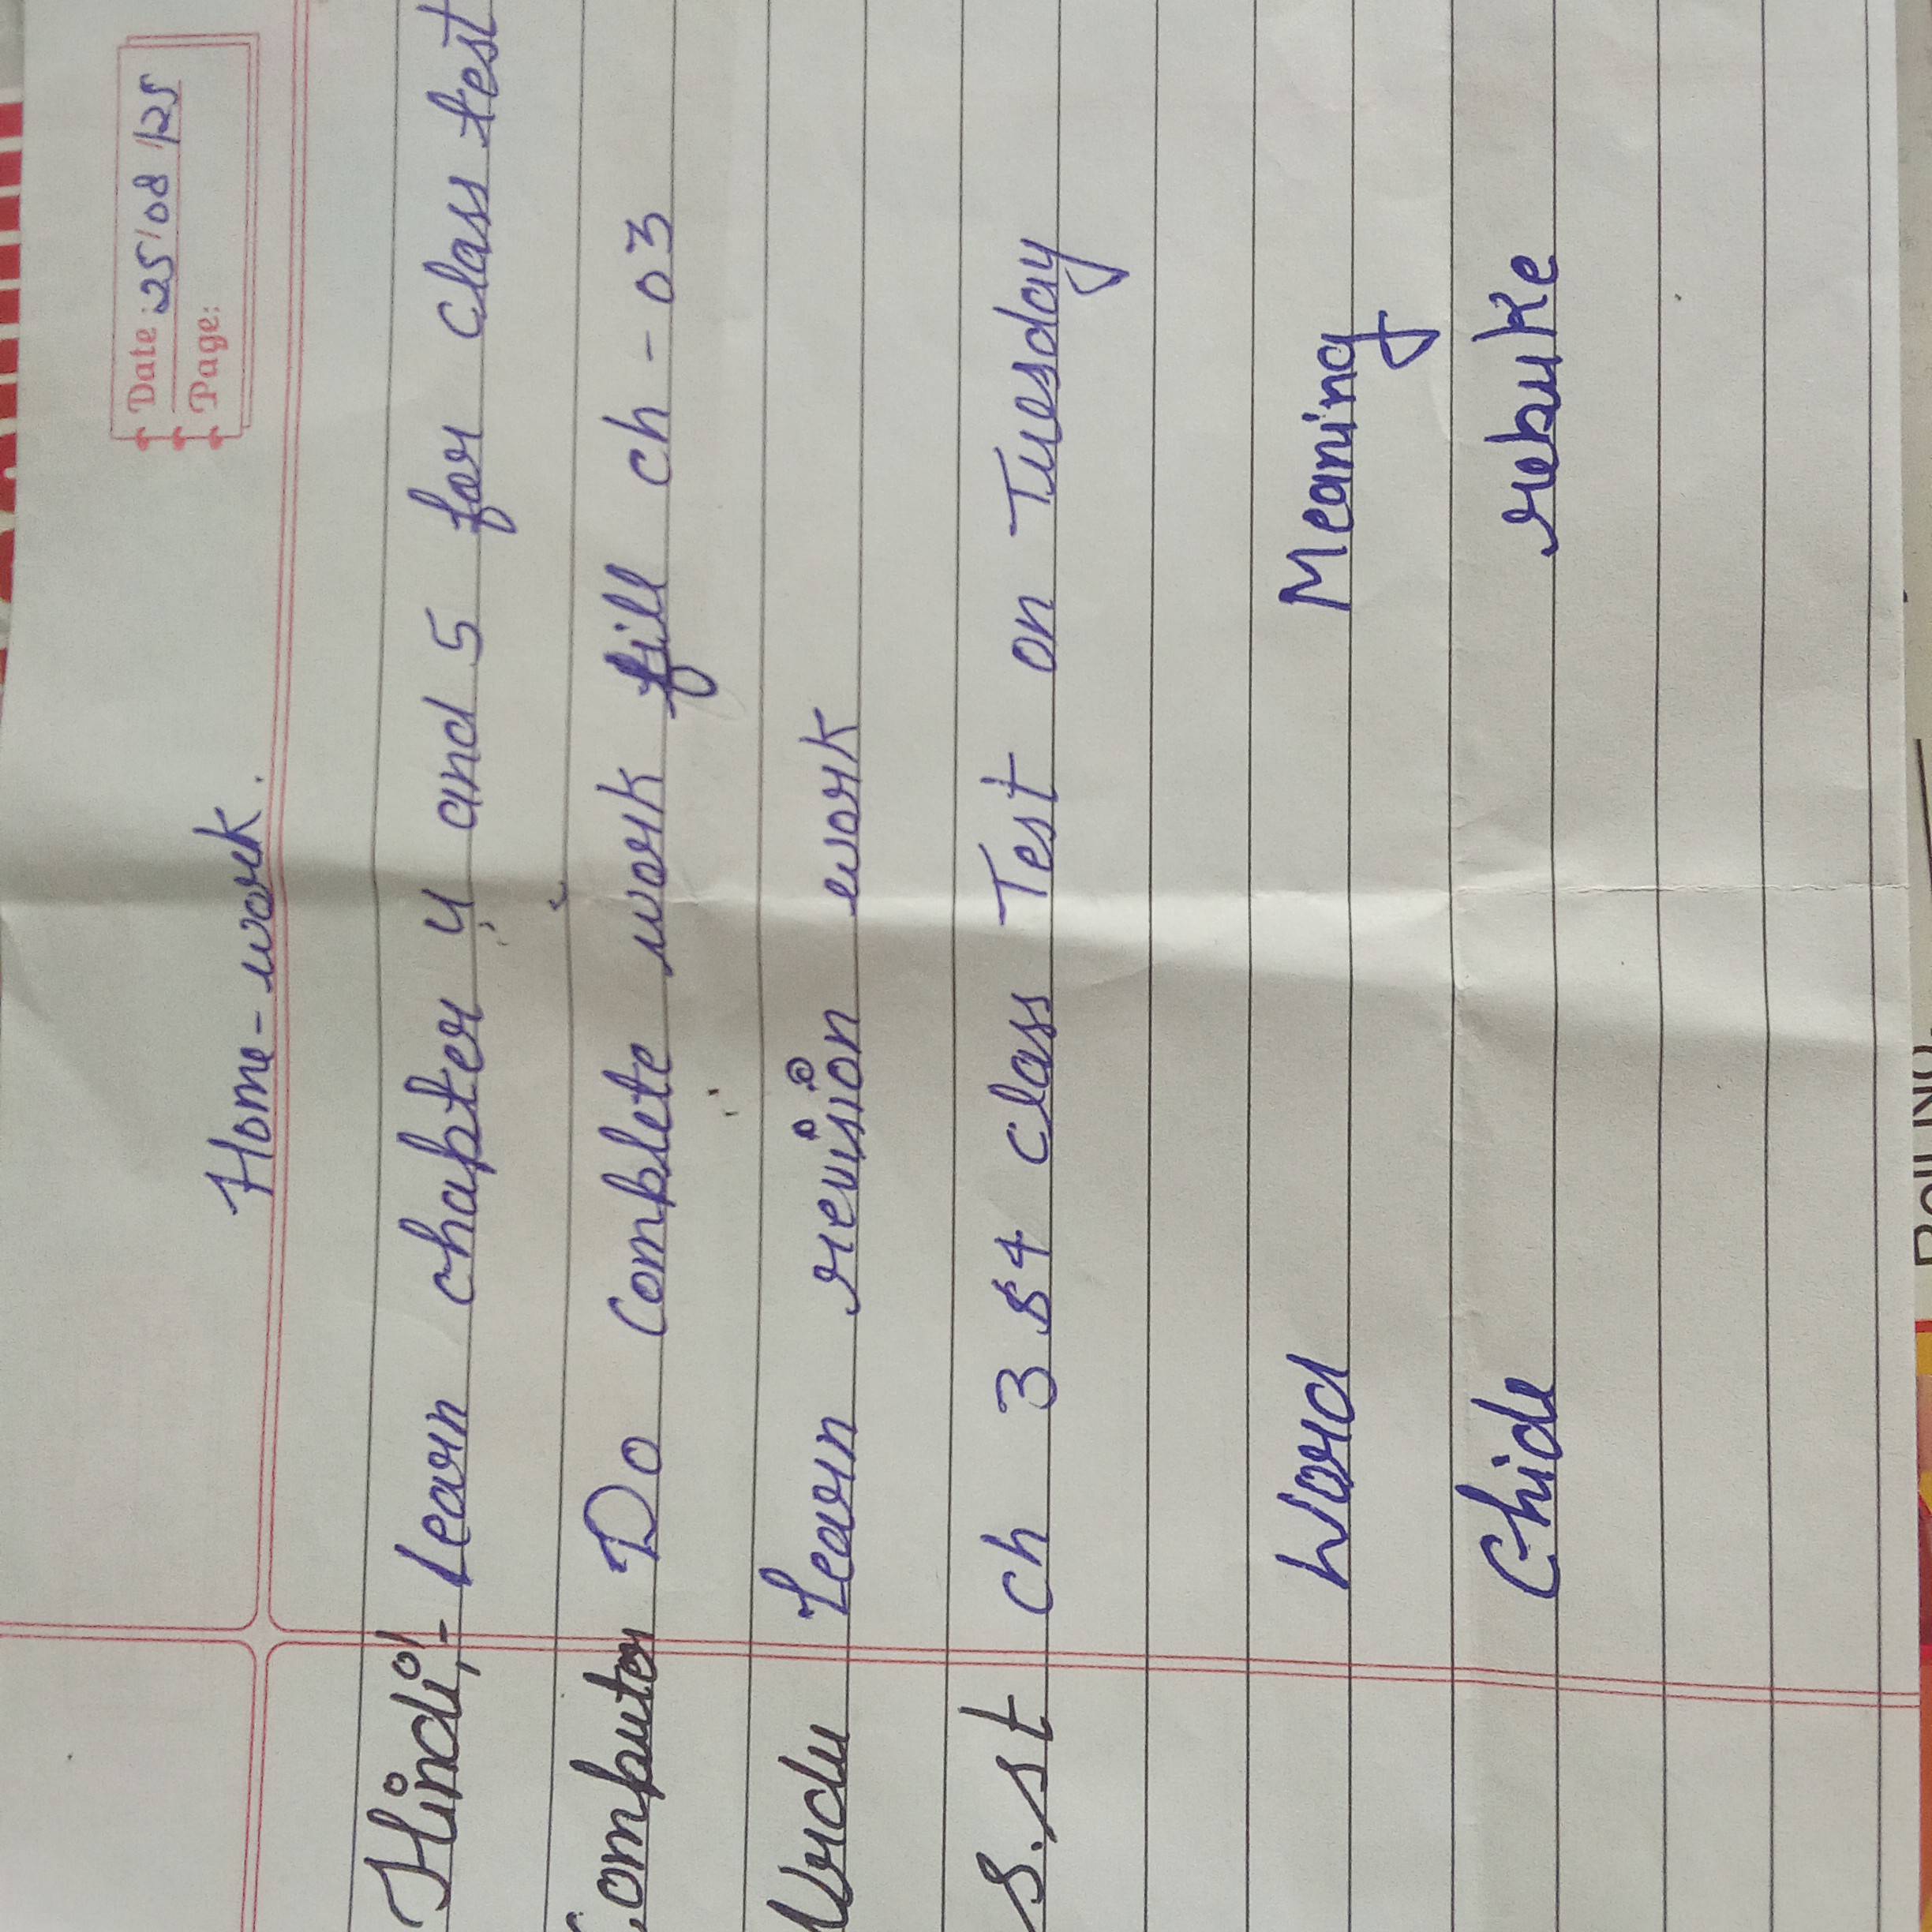 Date: 25/08/25
Page:
Home-work.
Hindi:- Learn chapter 4 and 5 for class test
Computer Do Complete work fill ch - 03
Urdu Learn revision work
S.st ch 3 & 4 class Test on Tuesday
Word Meaning
Chide rebuke
Roll No.